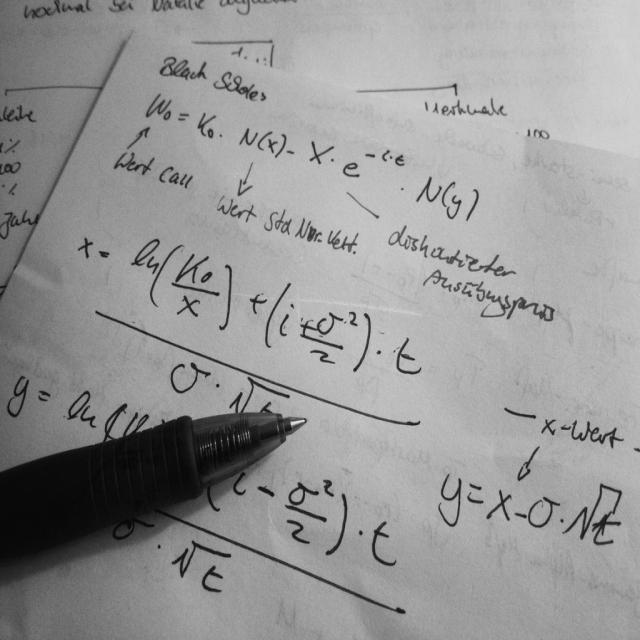 nochmal bei
Black Scholes
W₀ = K₀ · N(x) – X · e^(-i·t) · N(y)
Wert call
Wert Std Nor. Vert.
diskontierter
Ausübungspreis
x = ln(K₀/x) + (i + σ²/2) · t
σ · √t
y = ln
(i – σ²/2) · t
σ · √t
– x-Wert –
y = x – σ · √t
Merkmale
100